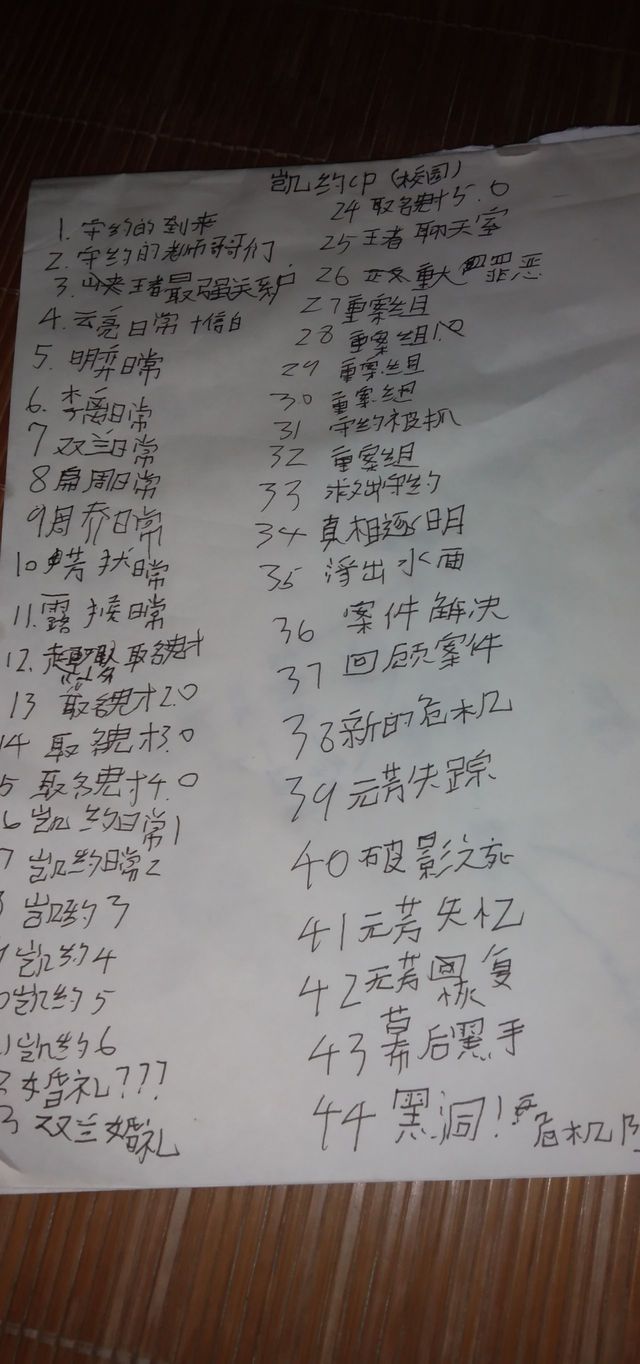 凯约CP(校园)
1. 守约的到来
2. 守约的老师哥哥们
3. 王者最强关系户
4. 云亮日常+信白
5. 明弈日常
6. 李离日常
7 双兰日常
8 扁周日常
9 周乔日常
10 日常
11. 露猴日常
12. 取名鬼才
13 取名鬼才2.0
14 取名鬼才3.0
5 取名鬼才4.0
6 凯约日常1
7 凯约日常2
凯约3
凯约4
0 凯约5
凯约6
婚礼???
3 双兰婚礼
24 取名鬼才5.0
25 王者聊天室
26 重大罪恶
27 重案组
28 重案组
29 重案组
30 重案组
31 守约被抓
32 重案组
33 救出守约
34 真相逐明
35 浮出水面
36 案件解决
37 回顾案件
38 新的危机
39 元芳失踪
40 破影之死
41 元芳失忆
42 元芳恢复
43 幕后黑手
44 黑洞!危机